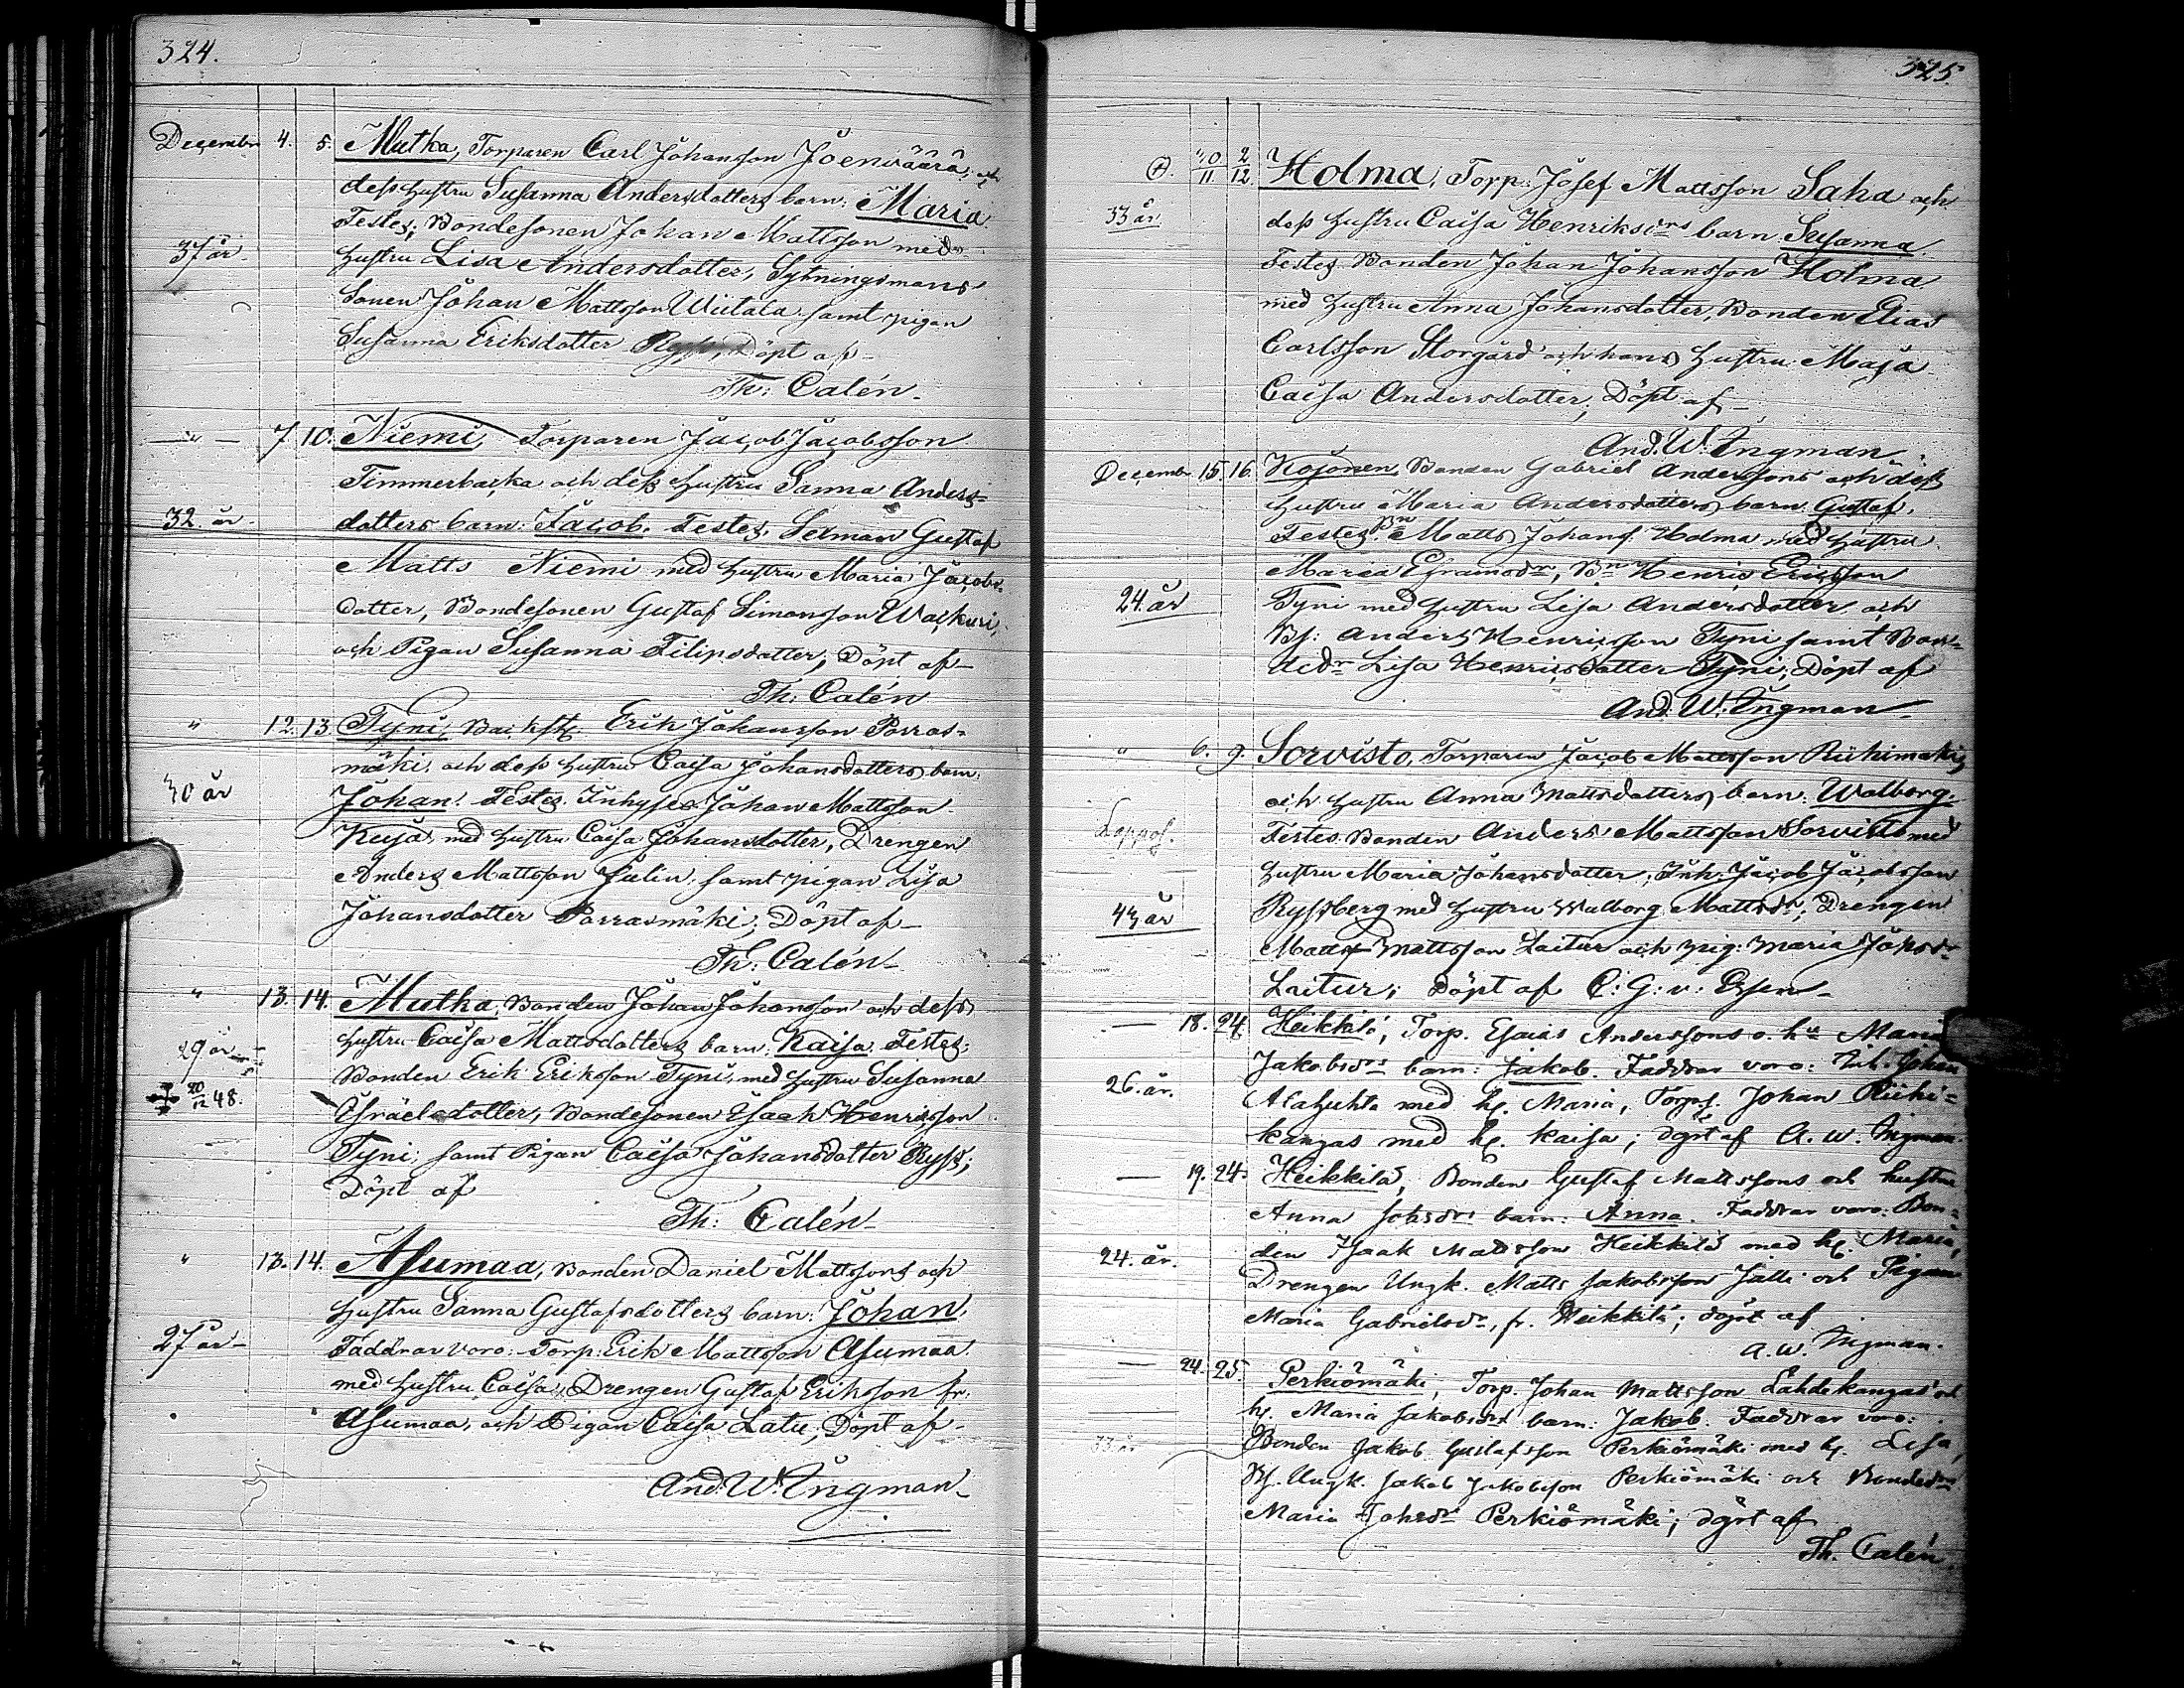 324.
December 4. 5. Mutka, Torparen Carl Johansson Joenväärä, och
dess hustru Susanna Andersdotters barn: Maria.
Testes; Bondesonen Johan Mattsson med
37 år. hustru Lisa Andersdotter, Sytningsmans
Sonen Johan Mattsson Wiitala samt pigan
Susanna Eriksdotter Döpt af
Th: Calén.
— " — 7 10. Niemi, Torparen Jacob Jacobsson
Timmerbacka och dess hustru Sanna Anders-
32. år. dotters barn: Jacob. Testes: Sexman Gustaf
Matts Niemi med hustru Maria Jacobs-
dotter, Bondesonen Gustaf Simonsson Wackuri,
och Pigan Susanna Filipsdotter; Döpt af
Th: Calén
" 12. 13 Tyni, Erik Johansson Porras-
mäki, och dess hustru Caisa Johansdotters barn:
30 år Johan. Testes. Inhyses Johan Mattsson
Kuja med hustru Caisa Johansdotter, Drengen
Anders Mattsson Julin, samt pigan Lisa
Johansdotter Porrasmäki; Döpt af
Th: Calén
" 13. 14. Mutka, Bonden Johan Johansson och dess
hustru Caisa Mattsdotters barn: Kaisa. Testes;
29 år Bonden Erik Eriksson Tyni, med hustru Susanna
20/12 48. Israelsdotter, Bondesonen Isaak Henricsson
Tyni, samt Pigan Caisa Johansdotter Ryss;
Döpt af
Th: Calén
" 13. 14. Asumaa, Bonden Daniel Mattssons och
hustru Sanna Gustafsdotters barn: Johan.
27 år Faddrar voro: Torp: Erik Mattsson Asumaa
med hustru Caisa, Drengen Gustaf Eriksson fr.
Asumaa, och Pigan Caisa Latu; Döpt af
And. W. Ingman
325.
30/11 2/12. Holma, Torp: Josef Mattsson Saha och
33 år dess hustru Caisa Henriks barn Susanna.
Testes Bonden Johan Johansson Holma
med hustru Anna Johansdotter, Bonden Elias
Carlsson Storgård och hans hustru Maja
Caisa Andersdotter; Döpt af
And. W. Ingman
December 15. 16. Kojonen, Bonden Gabriel Anderssons och dess
hustru Maria Andersdotters barn: Gustaf.
Testes: Bn Matts Johans. Holma med hustru
Maria Eframsdr, Bn Henric Ericsson
24. år Tyni med hustru Lisa Andersdotter och
Bs: Anders Henricsson Tyni samt Bon-
dedr Lisa Henricsdotter Tyni; Döpt af
And. W. Ingman
" 6. 9. Sorvisto, Torparen Jacob Mattsson Riihimäkis
och hustru Anna Mattsdotters barn: Walborg.
Testes Bonden Anders Mattsson Sorvisto med
hustru Maria Johansdotter, Inh: Jacob Jacobsson
43 år Ryssberg med hustru Walborg Mattsdr; Drengen
Matts Mattsson Laitur och pig: Maria
Laitur; Döpt af C: G: v: Essen
— 18. 24. Heikkilä, Torp. Esaias Anderssons o. hu Maria
Jakobsdrs barn: Jakob. Faddrar voro: Inh. Johan
26. år. Alaluhta med h. Maria, Torps. Johan Riihi-
kangas med h. Kaisa; döpt af A. W. Ingman.
— 19. 24. Heikkilä, Bonden Gustaf Mattssons och hustru
Anna Johsdrs barn: Anna. Faddrar voro: Bon-
24. år. den Isaak Mattsson Heikkilä med h. Maria,
Drengen Ungk. Matts Jakobsson Jalli och Pigan
Maria Gabrielsdr, fr. Heikkilä; döpt af
A. W. Ingman.
— 24. 25. Perkiömäki, Torp. Johan Mattsson Lahdekangas och
h. Maria Jakobsdrs barn: Jakob. Faddrar voro:
33 år Bonden Jakob Gustafsson Perkiömäki med h. Lisa,
Bs. Ungk. Jakob Jakobsson Perkiömäki och Bondedr
Maria Johsdr Perkiömäki; döpt af
Th. Calén